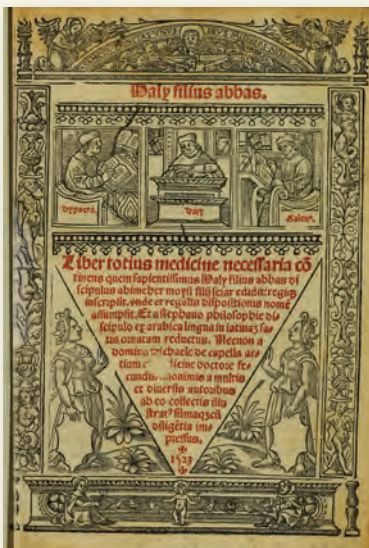 Haly filius abbas.
Haly
Galen⁹
Liber totius medicine necessaria cō
tinens quem sapientissimus Haly filius abbas di
scipulus abimeher moysi filii seiar edidit: regiq;
inscripsit. vnde et regalis dispositionis nomē
assumpsit. Et a stephano philosophie di
scipulo ex arabica lingua in latinaꝫ sa
tis ornatam reductus. Necnon a
domino michaele de capella ar
tium dicine doctore fe
cundis nonimis a multis
et diuersis autoribus
ab eo collectis illu
strat⁹ summaqꝫ cū
diligētia im
pressus.
1523